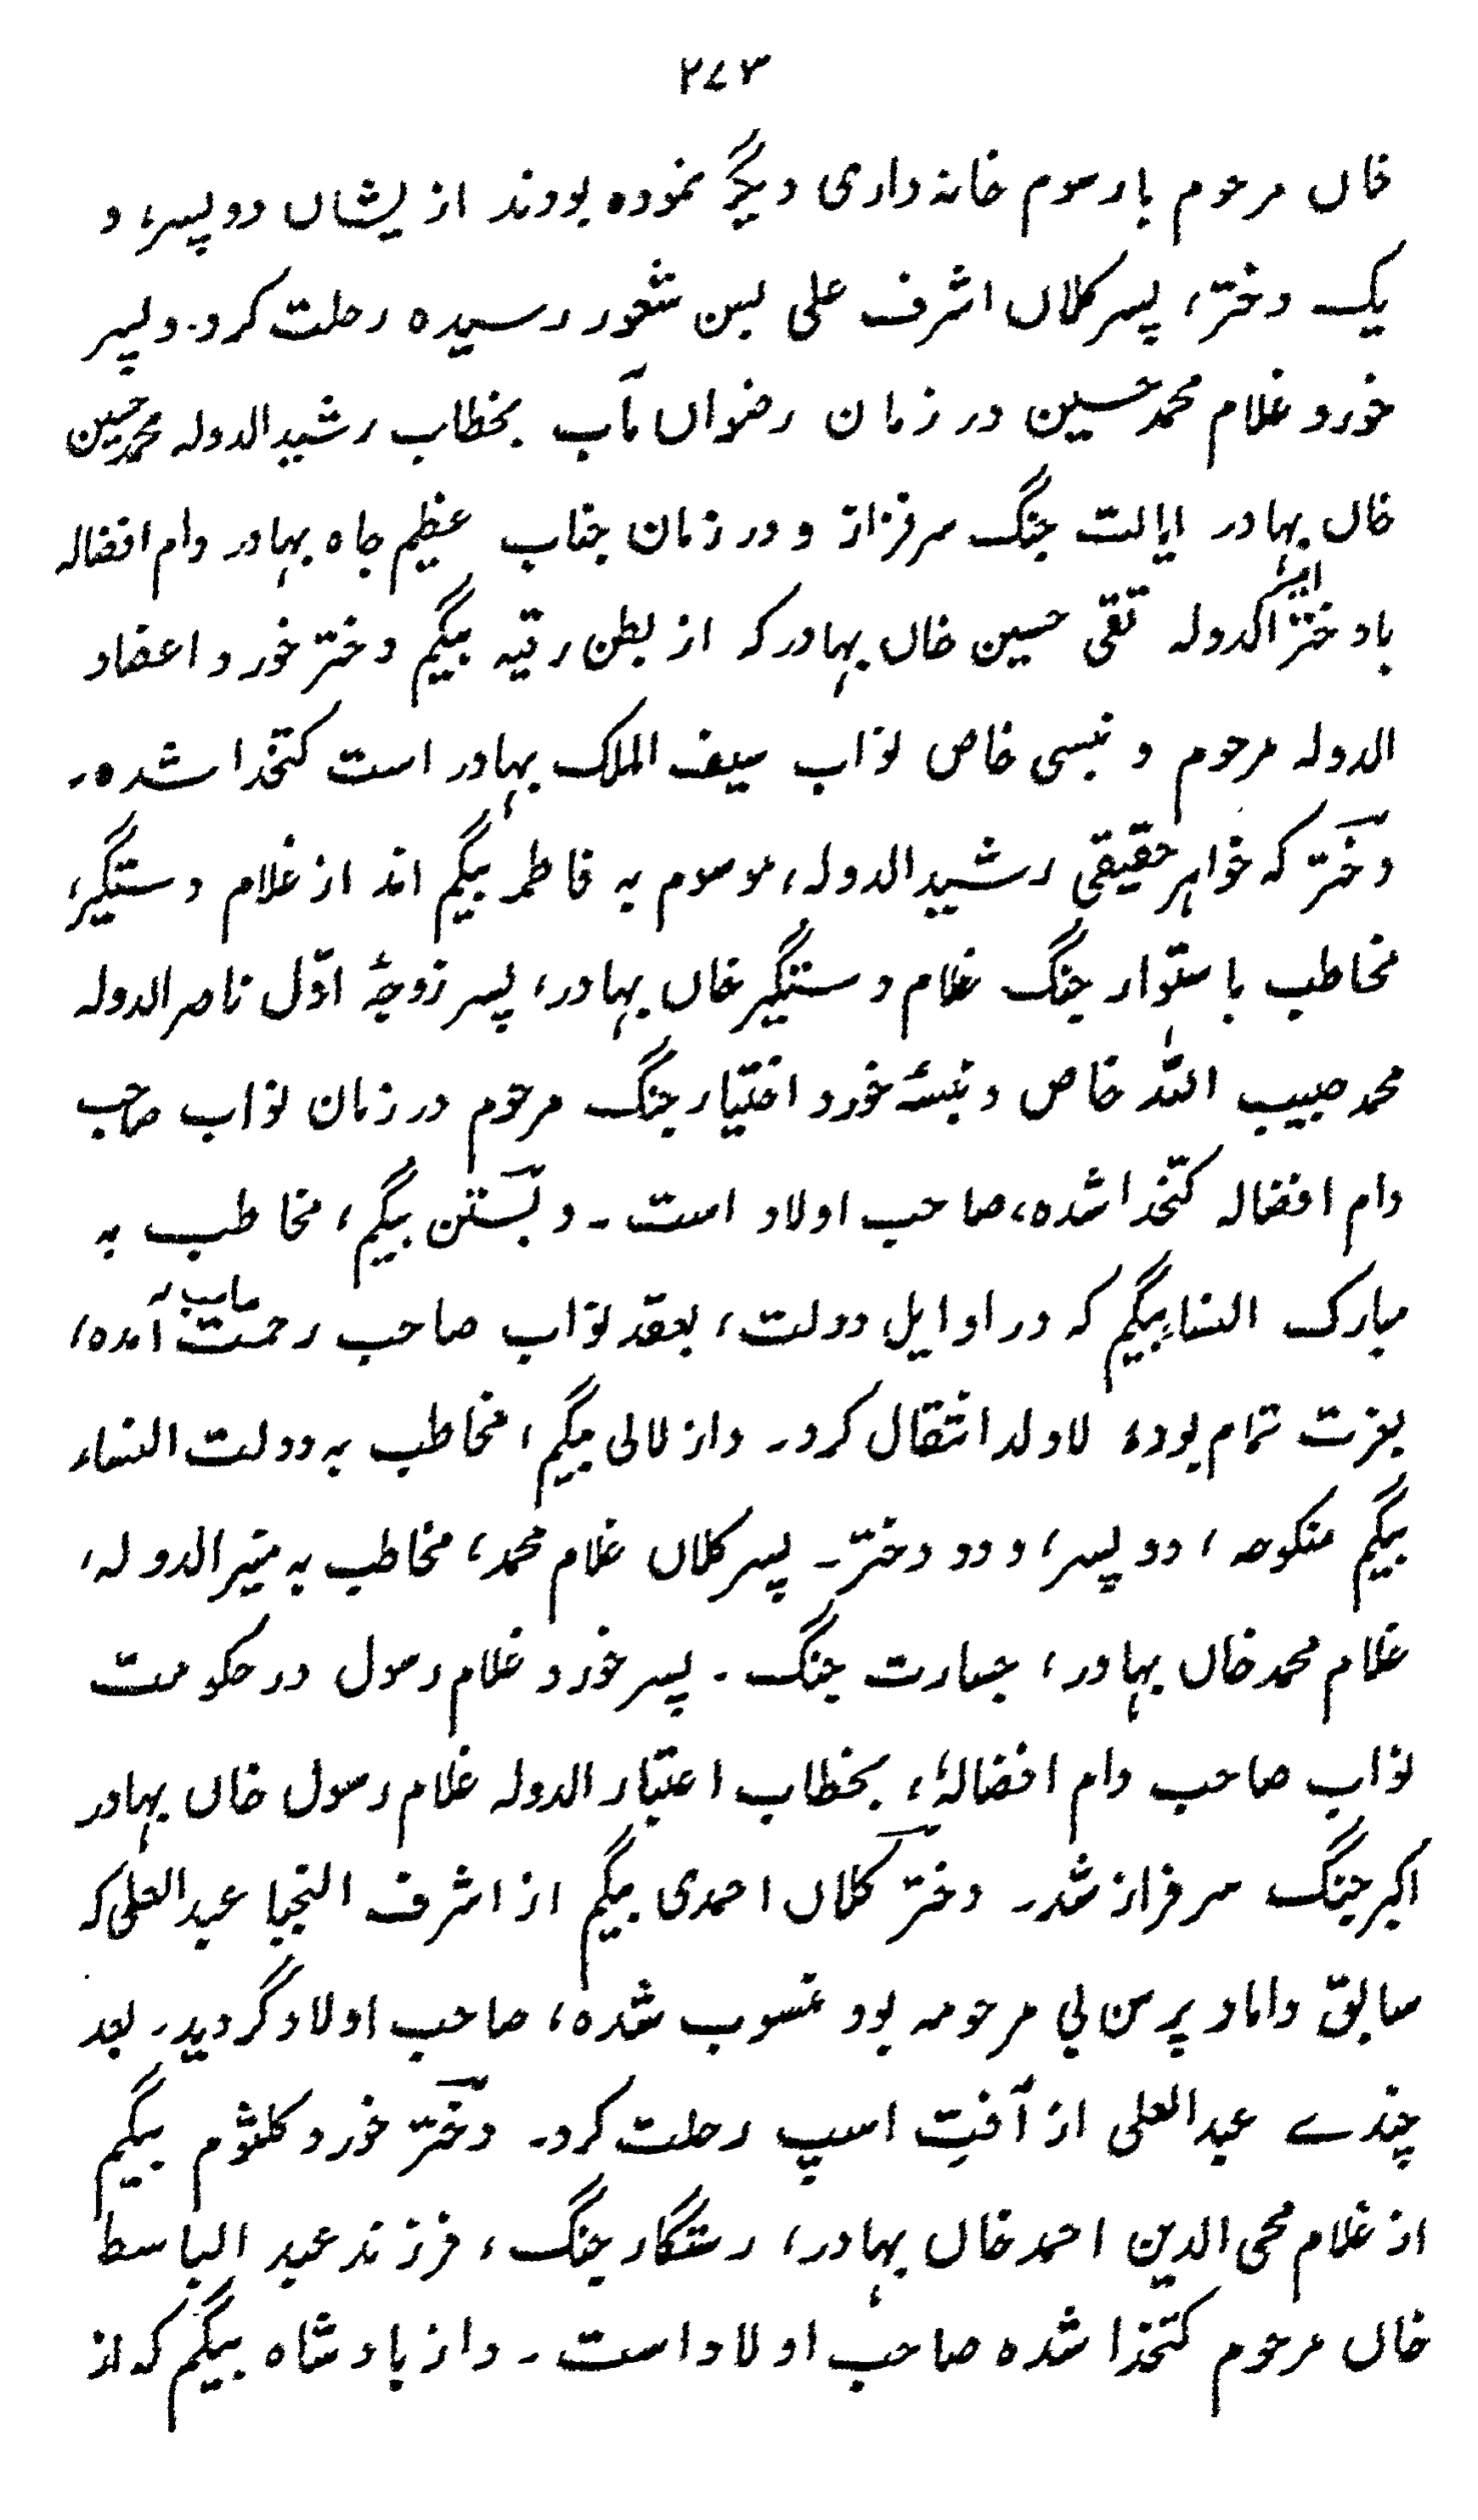 ۲۷۳
خاں مرحوم با رسوم خانہ داری دیگر نمودہ بودند از یشاں دو پسر، و
یک دختر، پسر کلاں اشرف علی بسن شعور رسیدہ رحلت کرد۔ و پسر
خورد غلام محمد حسین در زمان رضواں مآب بخطاب رشید الدولہ محمد حسین
خاں بہادر ایالت جنگ سرفراز و در زمان جناب عظیم جاہ بہادر دام افضالہ
با دختر الدولہ تقی حسین خاں بہادر کہ از بطن رقیہ بیگم دختر خورد اعضاد
الدولہ مرحوم و نبسی خاص نواب سیف الملک بہادر است کتخدا شدہ۔
دختر کہ خواہر حقیقی رشید الدولہ، موسوم بہ فاطمہ بیگم اند از غلام دستگیر،
مخاطب باستوار جنگ غلام دستگیر خاں بہادر، پسر زوجۂ اوّل ناصر الدولہ
محمد حبیب اللہ خاص و نبسۂ خورد اختیار جنگ مرحوم در زمان نواب صاحب
دام افضالہ کتخدا شدہ، صاحب اولاد است۔ و بستن بیگم، مخاطب بہ
مبارک النساء بیگم کہ در اوایل دولت، بعقد نواب صاحب رحمت مآب آمدہ،
بعزت تمام بودہ لاولد انتقال کرد۔ و از لالی بیگم، مخاطب بہ دولت النساء
بیگم منکوحہ، دو پسر، و دو دختر۔ پسر کلاں غلام محمد، مخاطب بہ میتر الدولہ،
غلام محمد خاں بہادر، جسارت جنگ۔ پسر خورد غلام رسول در حکومت
نواب صاحب دام افضالہٗ، بخطاب اعتبار الدولہ غلام رسول خاں بہادر
اکبر جنگ سرفراز شد۔ دختر کلاں احمدی بیگم از اشرف النجبا عبدالعلی کہ
سابق داماد پرسن بی مرحومہ بود منسوب شدہ، صاحب اولاد گردید۔ بعد
چندے عبدالعلی از آفتِ اسپ رحلت کرد۔ دختر خورد کلثوم بیگم
از غلام محی الدین احمد خاں بہادر، رستگار جنگ، فرزند عبد الباسط
خاں مرحوم کتخدا شدہ صاحب اولاد است۔ و از بادشاہ بیگم کہ از